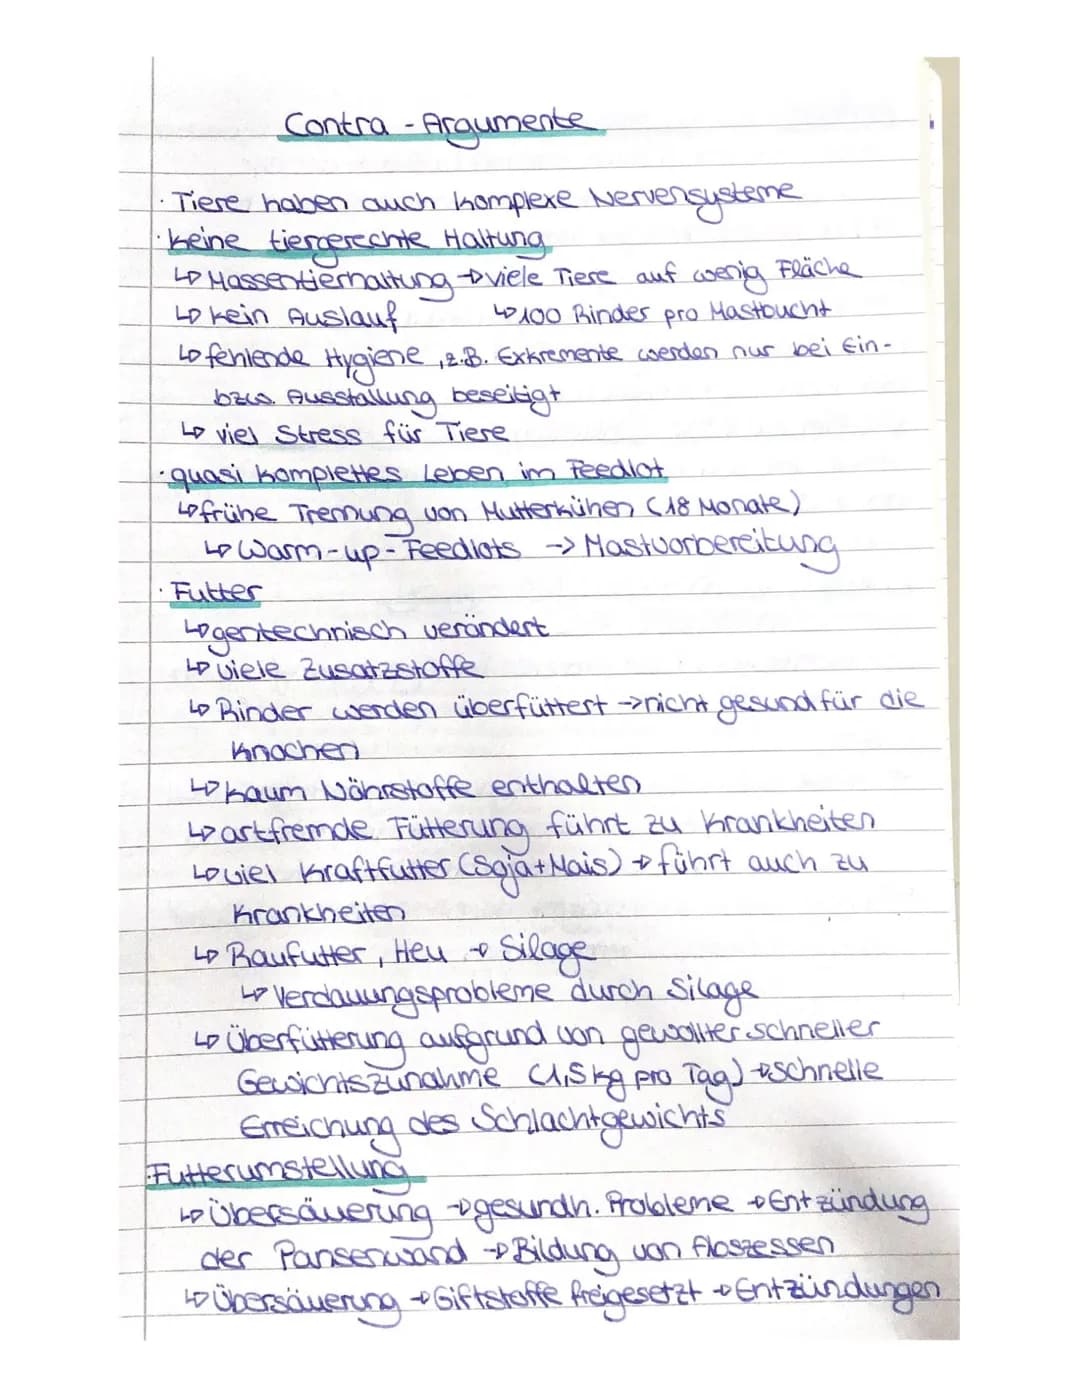 Contra - Argumente
· Tiere haben auch komplexe Nervensysteme
· keine tiergerechte Haltung
↳ Massentierhaltung → viele Tiere auf wenig Fläche
↳ kein Auslauf ↳ 100 Rinder pro Mastbucht
↳ fehlende Hygiene, z.B. Exkremente werden nur bei Ein-
bzw. Ausstallung beseitigt
↳ viel Stress für Tiere
· quasi komplettes Leben im Feedlot
↳ frühe Trennung von Mutterkühen (18 Monate)
↳ Warm-up-Feedlots -> Mastvorbereitung
· Futter
↳ gentechnisch verändert
↳ viele Zusatzstoffe
↳ Rinder werden überfüttert -> nicht gesund für die
Knochen
↳ kaum Nährstoffe enthalten
↳ artfremde Fütterung führt zu Krankheiten
↳ viel Kraftfutter (Soja+Mais) → führt auch zu
Krankheiten
↳ Raufutter, Heu → Silage
↳ Verdauungsprobleme durch Silage
↳ Überfütterung aufgrund von gewollter schneller
Gewichtszunahme (1,5 kg pro Tag) → schnelle
Erreichung des Schlachtgewichts
· Futterumstellung
↳ Übersäuerung → gesundh. Probleme → Entzündung
der Pansenwand → Bildung von Abszessen
↳ Übersäuerung → Giftstoffe freigesetzt → Entzündungen